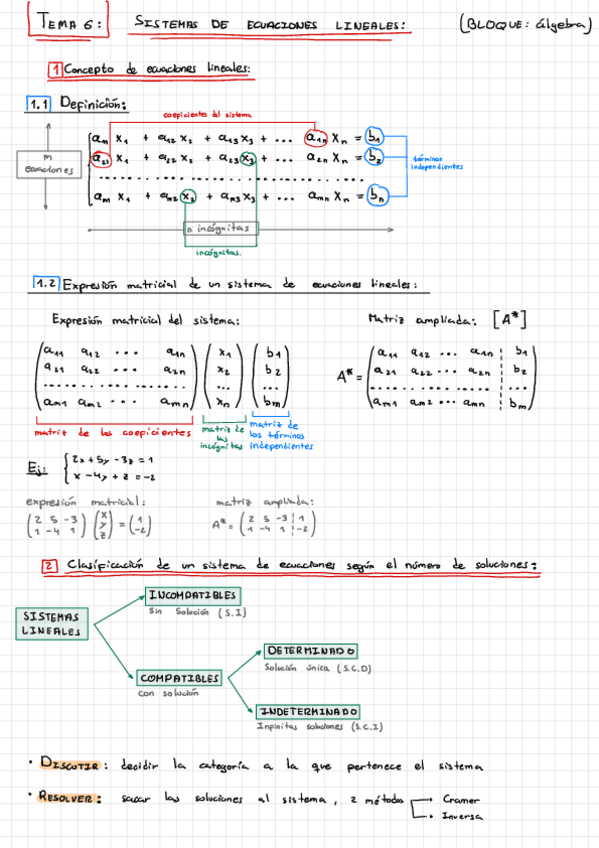 TEMA 6: SISTEMAS DE ECUACIONES LINEALES: (BLOQUE: álgebra)
1 Concepto de ecuaciones lineales:
1.1 Definición:
coeficientes del sistema
a11 x1 + a12 x2 + a13 x3 + ... a1n xn = b1
a21 x1 + a22 x2 + a23 x3 + ... a2n xn = b2
.......................................
am1 x1 + am2 x2 + am3 x3 + ... amn xn = bn
m ecuaciones
términos independientes
n incógnitas
incógnitas.
1.2 Expresión matricial de un sistema de ecuaciones lineales:
Expresión matricial del sistema: Matriz ampliada: [A*]
(a11 a12 ... a1n) (x1) (b1)
(a21 a22 ... a2n) (x2) (b2)
(....................) (...) (...)
(am1 am2 ... amn) (xn) (bm)
A* = (a11 a12 ... a1n | b1)
(a21 a22 ... a2n | b2)
(.................... | ...)
(am1 am2 ... amn | bm)
matriz de los coeficientes
matriz de las incógnitas
matriz de los términos independientes
Ej:
2x + 5y - 3z = 1
x - 4y + z = -2
expresión matricial: matriz ampliada:
(2 5 -3) (x) = (1)
(1 -4 1) (y) (-2)
(z)
A* = (2 5 -3 | 1)
(1 -4 1 | -2)
2 Clasificación de un sistema de ecuaciones según el número de soluciones:
SISTEMAS LINEALES
INCOMPATIBLES
Sin Solución (S.I)
COMPATIBLES
con solución
DETERMINADO
Solución única (S.C.D)
INDETERMINADO
Infinitas soluciones (S.C.I)
· DISCUTIR: decidir la categoría a la que pertenece el sistema
· RESOLVER: sacar las soluciones al sistema, 2 métodos
Cramer
Inversa